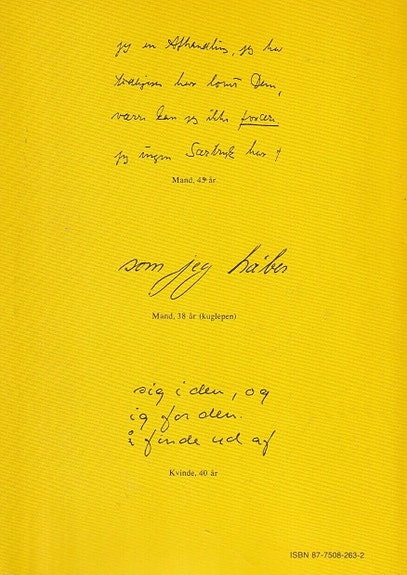 jeg en Afhandling, jeg har
tidligere har lovet Dem,
værre kan jeg ikke forære
jeg ingen Særtryk har f
Mand, 45 år
som jeg håber
Mand, 38 år (kuglepen)
sig i den, og
ig for den.
å finde ud af
Kvinde, 40 år
ISBN 87-7508-263-2